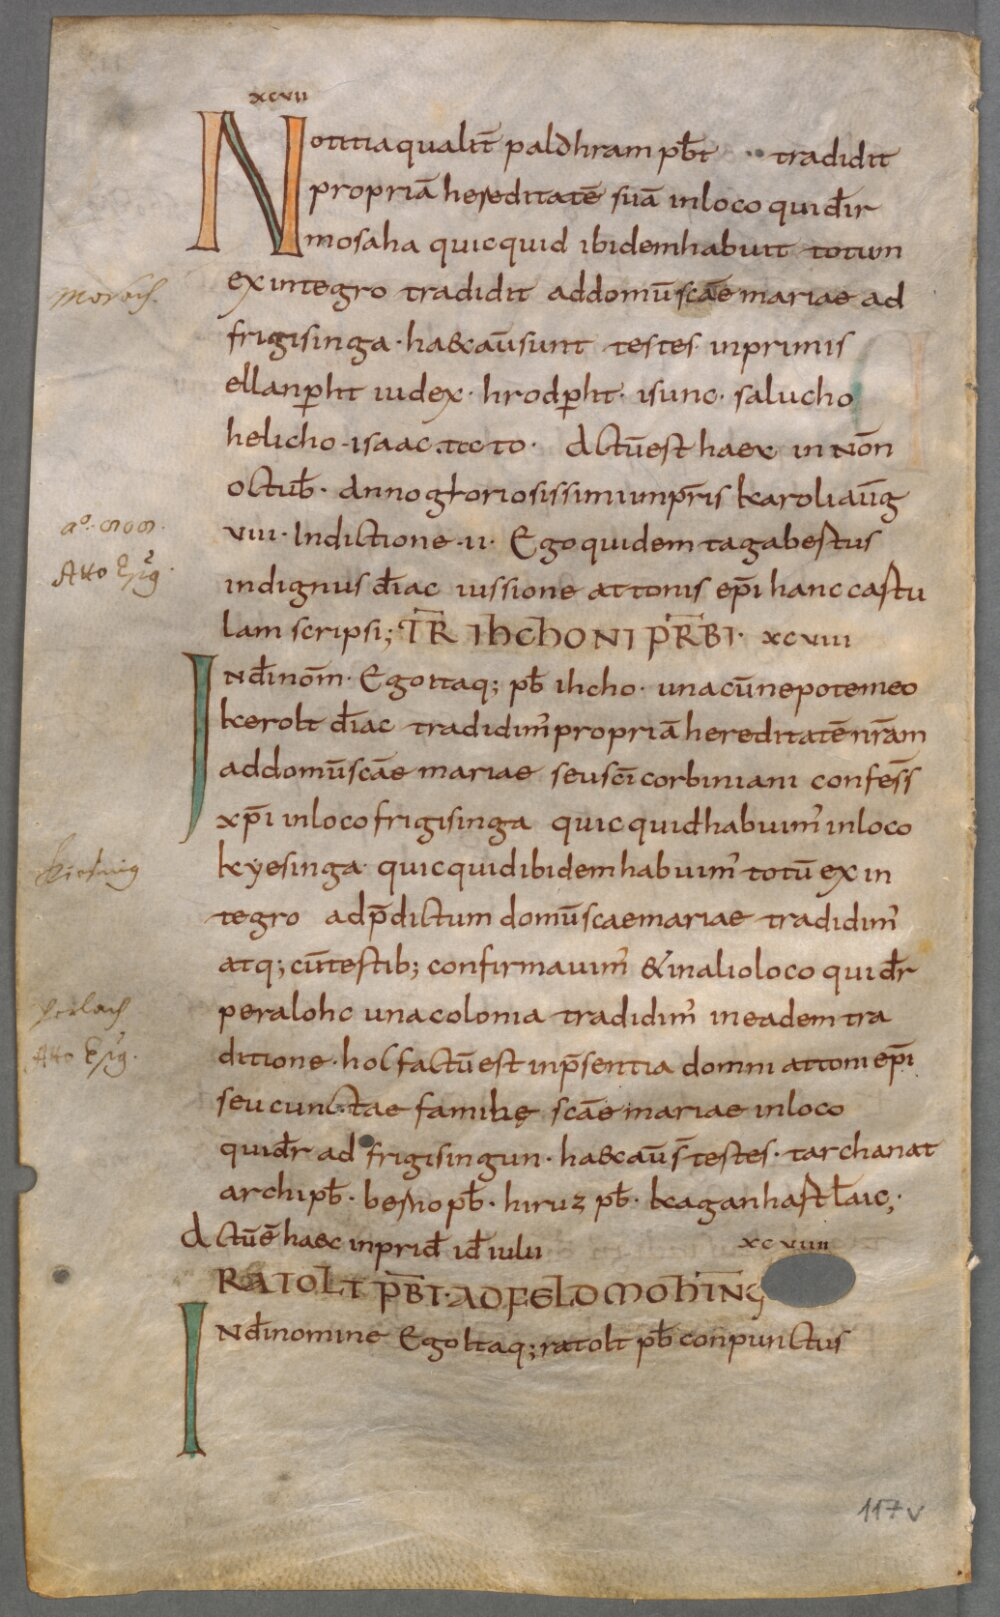 xcvii
Notitia qualit̄ paldhram pb̄t tradidit
propriā hereditatē suā in loco qui dr̄
mosaha quicquid ibidem habuit totum
ex integro tradidit ad domū scāe mariae ad
Morach.
frigisinga · haec aūsunt testes inprimis
ellanꝑht iudex · hrodꝑht · isunc · salucho
helicho · isaac · tc̄to · Actū est haec in Non̄
octub̄ · Anno gloriosissimi imp̄ris karoli aūg
viii · Indictione · ii · Ego quidem tagabertus
Atto Ep̄ig.
indignus diāc iussione attonis ep̄i hanc cartu
lam scripsi; TR̄ IhChONI PR̄BI · xcviii
In dī nom̄ · Ego itaq; pb̄ ihcho · una cū nepote meo
kerolt diāc tradidim᷒ propriā hereditatē nr̄am
ad domū scāe mariae seu scī corbiniani confes̄s
xp̄i in loco frigisinga quicquid habuim᷒ in loco
kyesinga quicquid ibidem habuim᷒ totū ex in
tegro ad p̄dictum domū scae mariae tradidim᷒
atq; cū testib; confirmauim᷒ & in alio loco qui dr̄
perlach
peralohc una colonia tradidim᷒ in eadem tra
ditione · hoc factū est in p̄sentia domni attoni ep̄i
seu cunctae familię scāe mariae in loco
qui dr̄ ad frigisingun · haec aūs̄ testes · tarchanat
archipb̄ · berno pb̄ · hiruz pb̄ · kaganhart laīc;·
Actū ē haec in prid̄ id̄ iulii xcviiii
RATOLT PR̄BI · AD FELDMOhING
In dī nomine Ego itaq; ratolt pb̄ conpunctus
117v